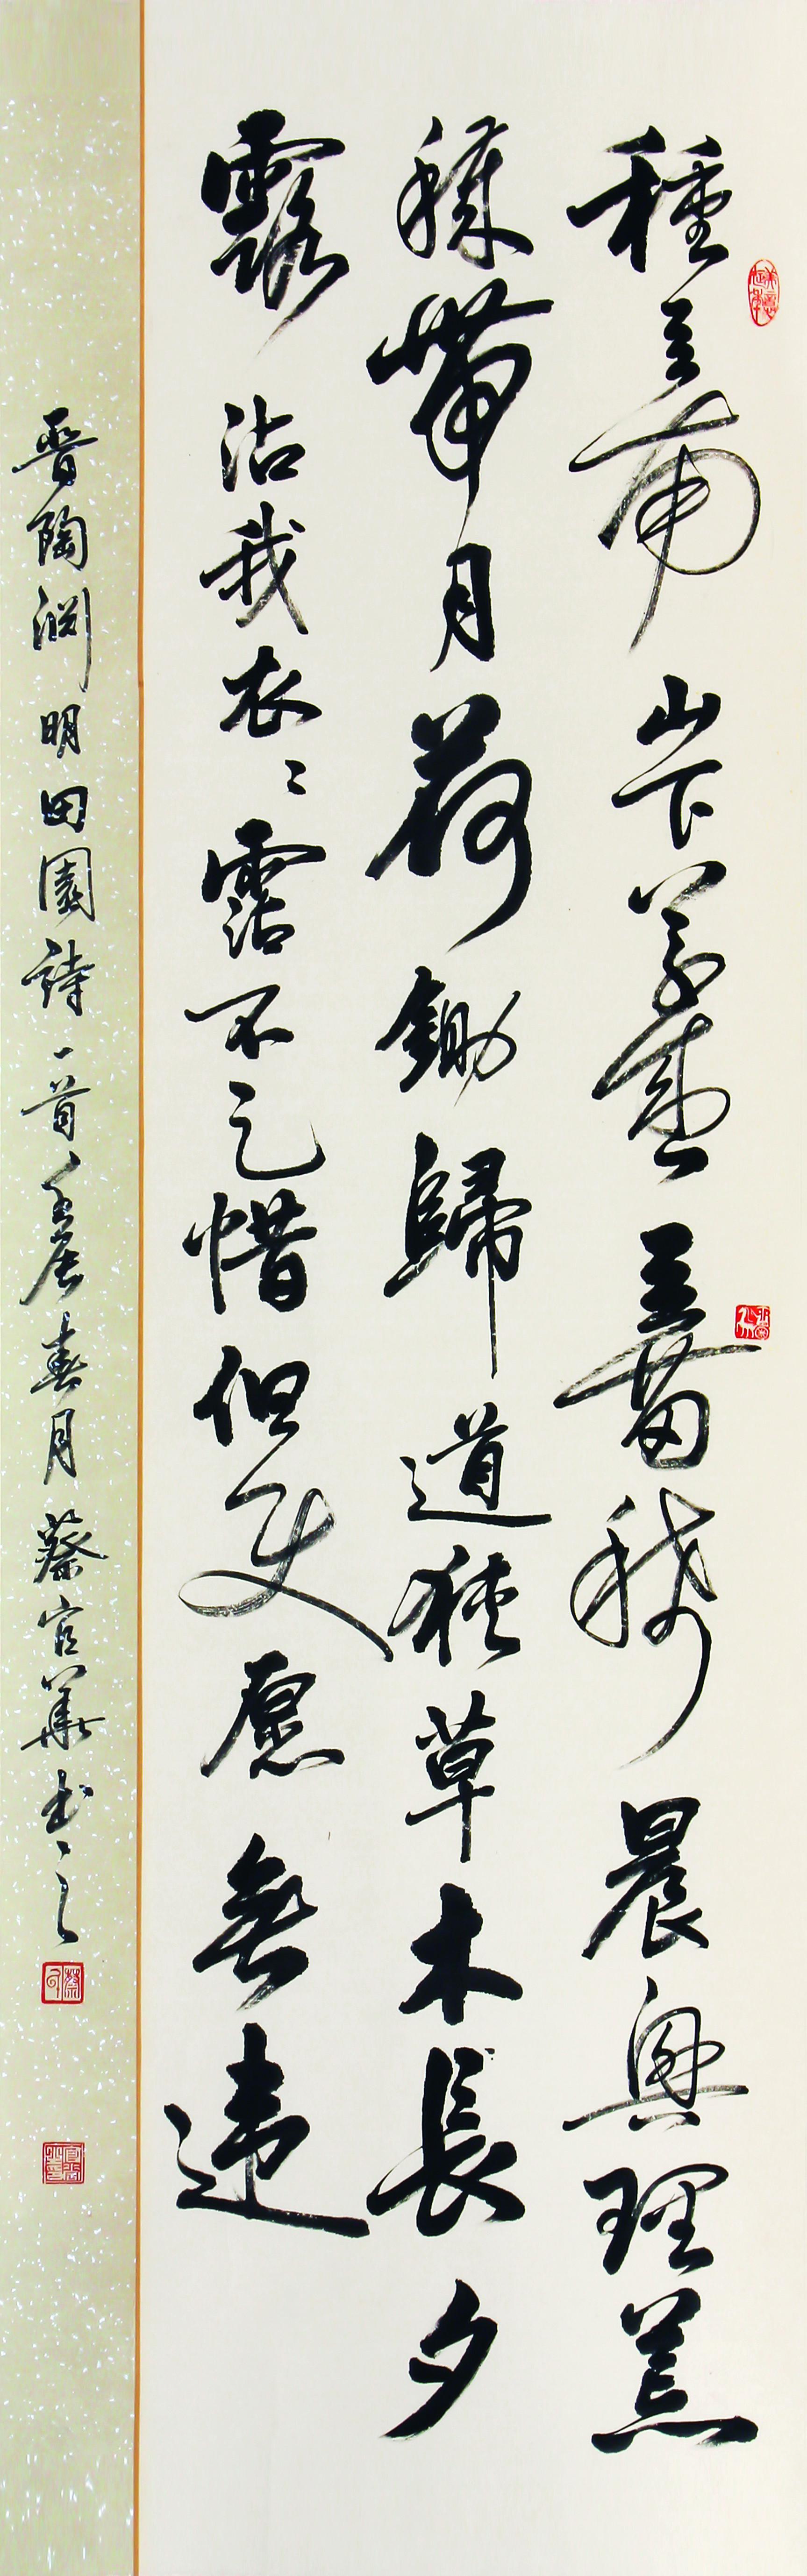 種豆南山下草盛豆苗稀晨興理荒
穢帶月荷鋤歸道狹草木長夕
露沾我衣〻霑不足惜但使愿無違
晉陶淵明田園詩一首壬辰春月蔡官華书之